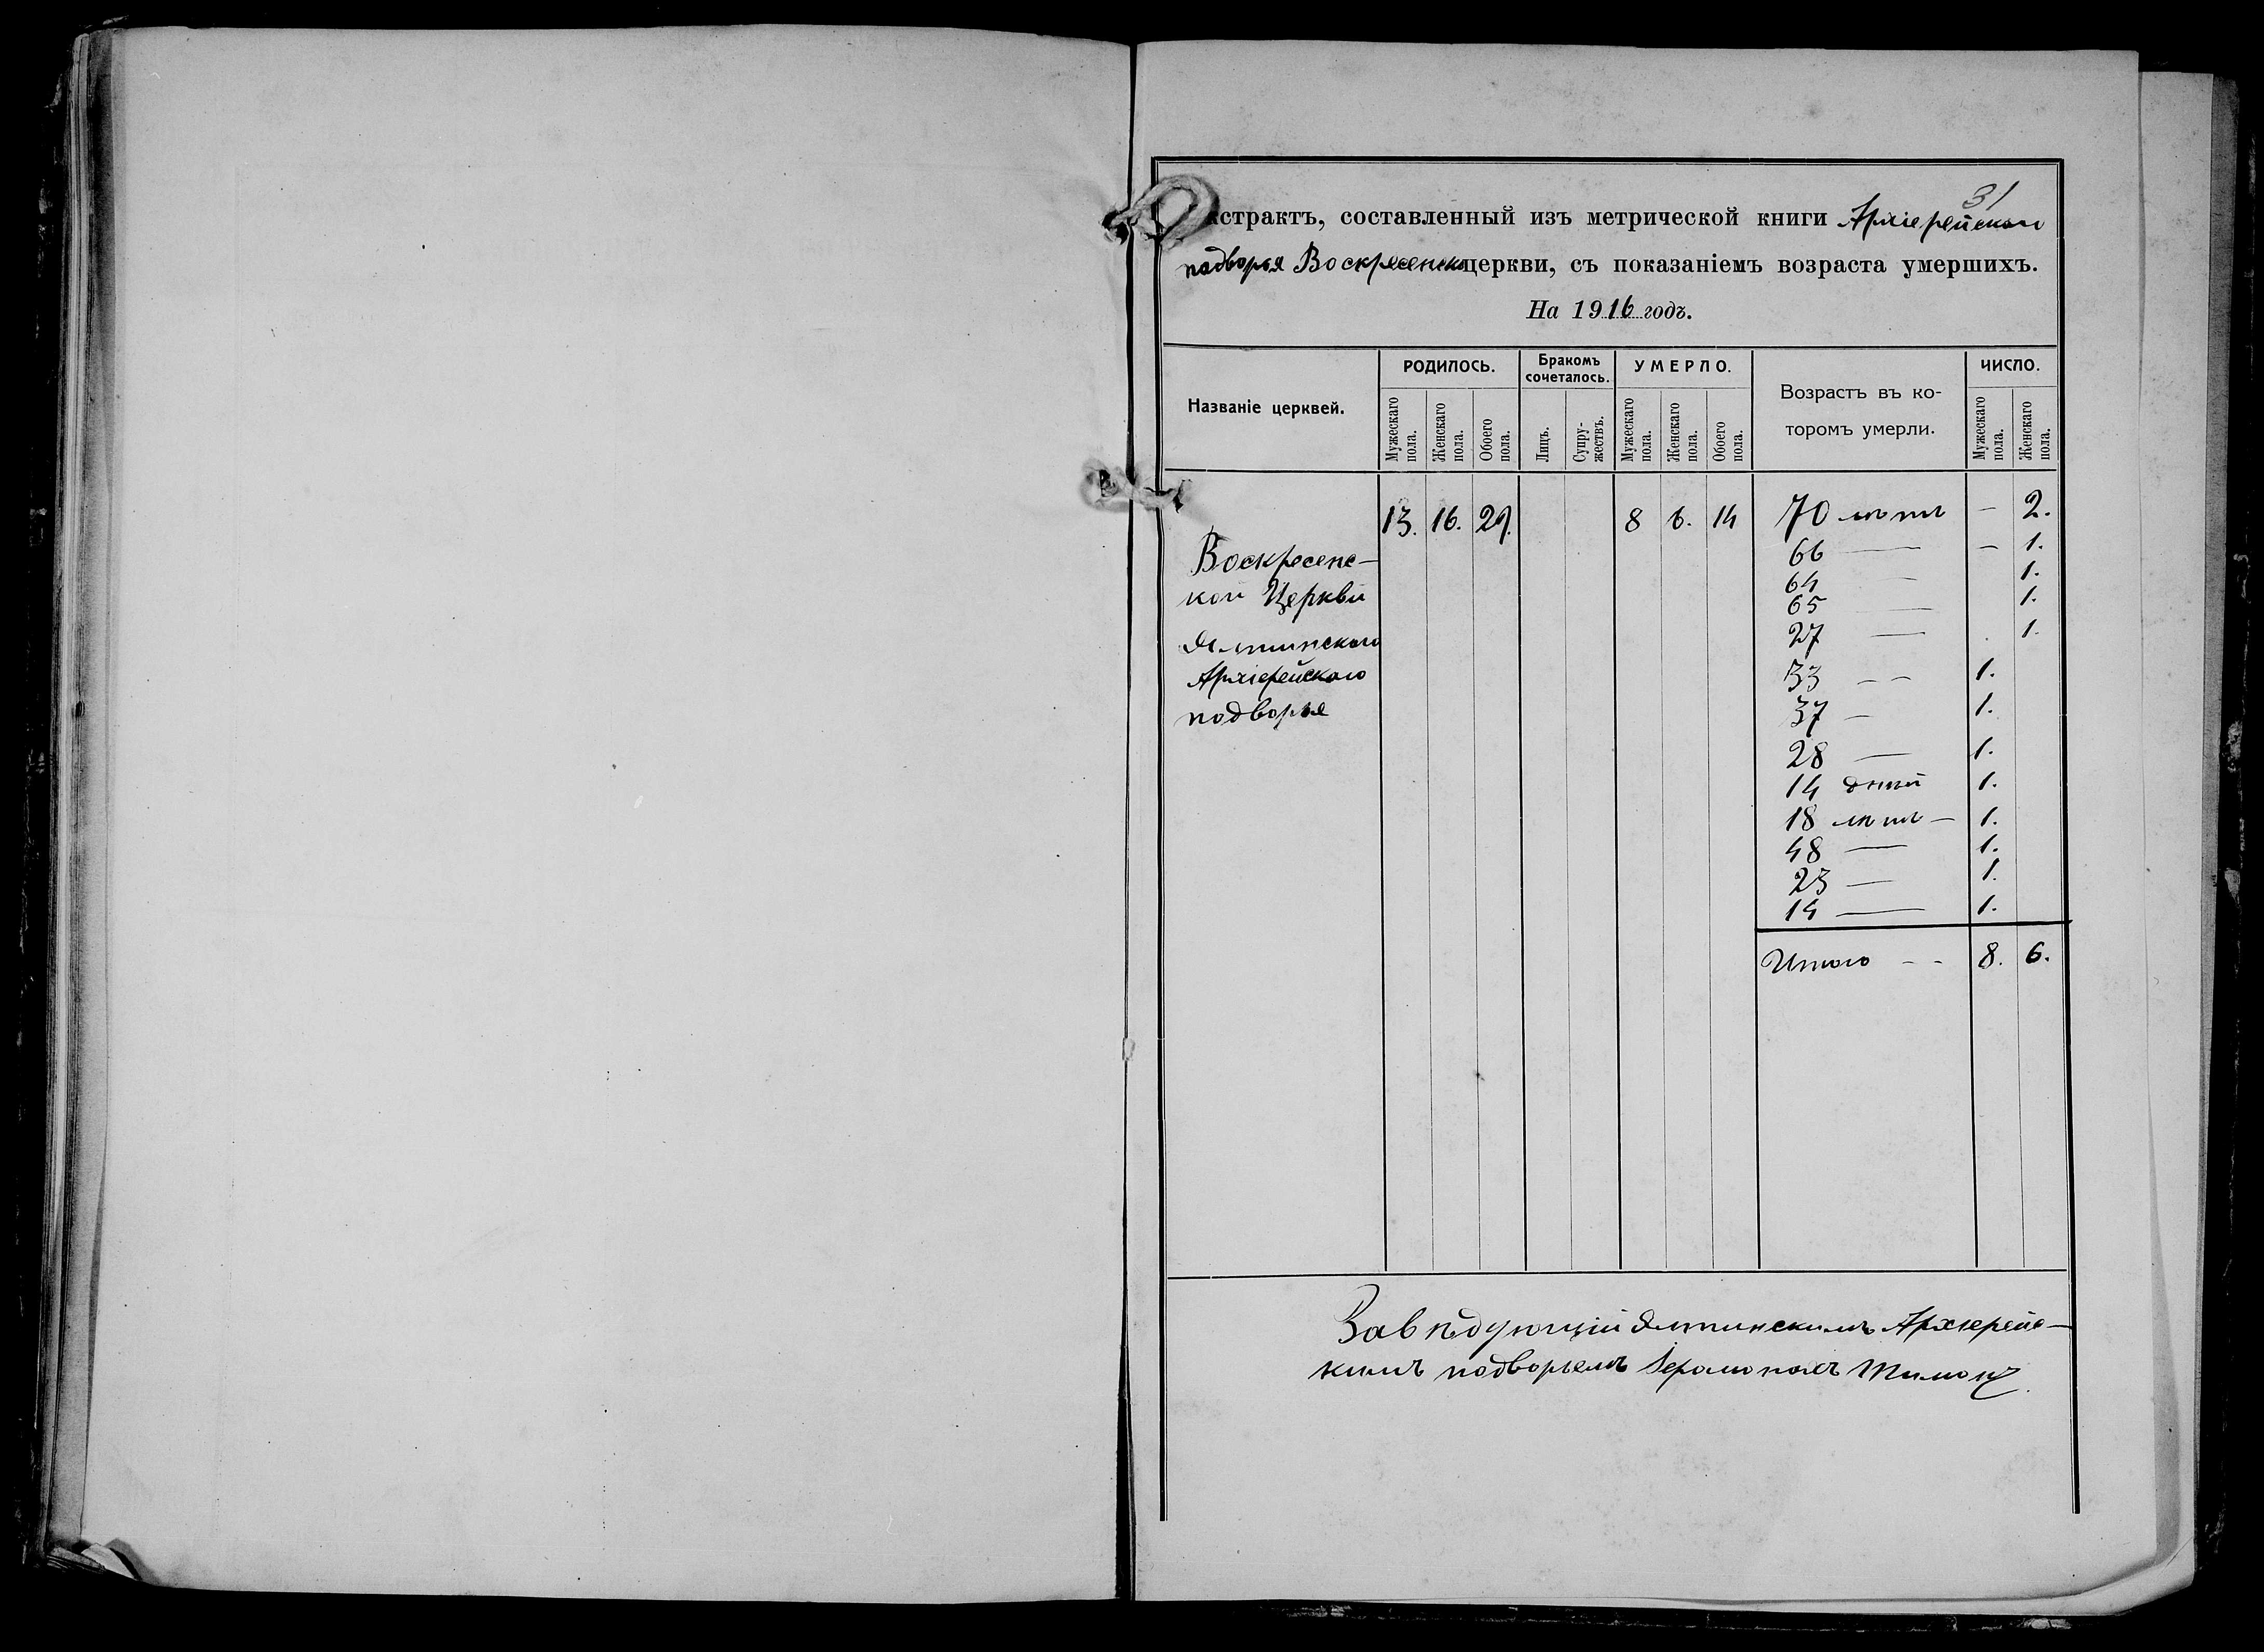 31
кстрактъ, составленный изъ метрической книги Архіерейскаго
подворья Воскресенской церкви, съ показаніемъ возраста умершихъ.
На 1916 годъ.
Названіе церквей.
РОДИЛОСЬ.
Мужескаго пола.
Женскаго пола.
Обоего пола.
Бракомъ сочеталось.
Лицъ.
Супружествъ.
УМЕРЛО.
Мужескаго пола.
Женскаго пола.
Обоего пола.
Возрастъ въ ко-
торомъ умерли.
ЧИСЛО.
Мужескаго пола.
Женскаго пола.
13. 16. 29. 8 6. 14 70 лѣтъ – 2.
Воскресенс-
кой Церкви
Ялтинскаго
Архіерейскаго
подворья
66 — – 1.
64 — 1.
65 — 1.
27 — 1.
33 – – 1.
37 – 1.
28 — 1.
14 дней 1.
18 лѣтъ – 1.
48 — 1.
23 — 1.
14 — 1.
Итого – – 8. 6.
Завѣдующій Ялтинскимъ Архіерейс-
кимъ подворьемъ Іеромонахъ Тимонъ